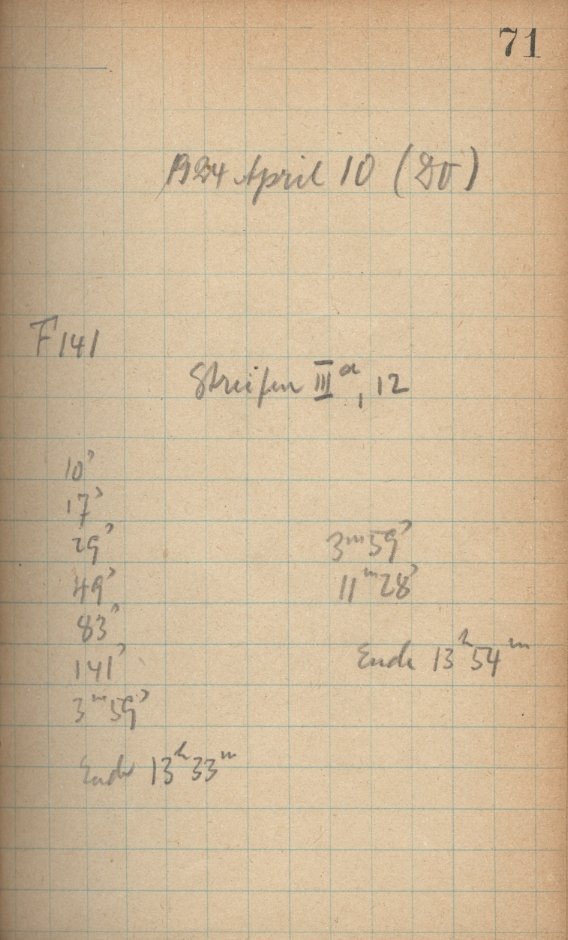 71
1924 April 10 (Do)
F141
Streifen III a, 12
10ˢ
17ˢ
29ˢ
49ˢ
83ˢ
141ˢ
3ᵐ59ˢ
Ende 13ʰ33ᵐ
3ᵐ59ˢ
11ᵐ28ˢ
Ende 13ʰ54ᵐ